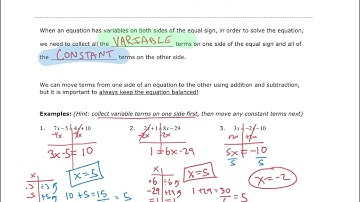 When an equation has variables on both sides of the equal sign, in order to solve the equation,
we need to collect all the VARIABLE terms on one side of the equal sign and all of
the CONSTANT terms on the other side.
We can move terms from one side of an equation to the other using addition and subtraction,
but it is important to always keep the equation balanced!
Examples: (Hint: collect variable terms on one side first, then move any constant terms next)
1. 7x-5=4x+10
2. 2x+1=8x-29
3. 3x=-2x-10
3x-5=10
1=6x-29
5x=-10
5 5
x=5
x=5
x=-2
10+5=15
1+29=30
=5
=5